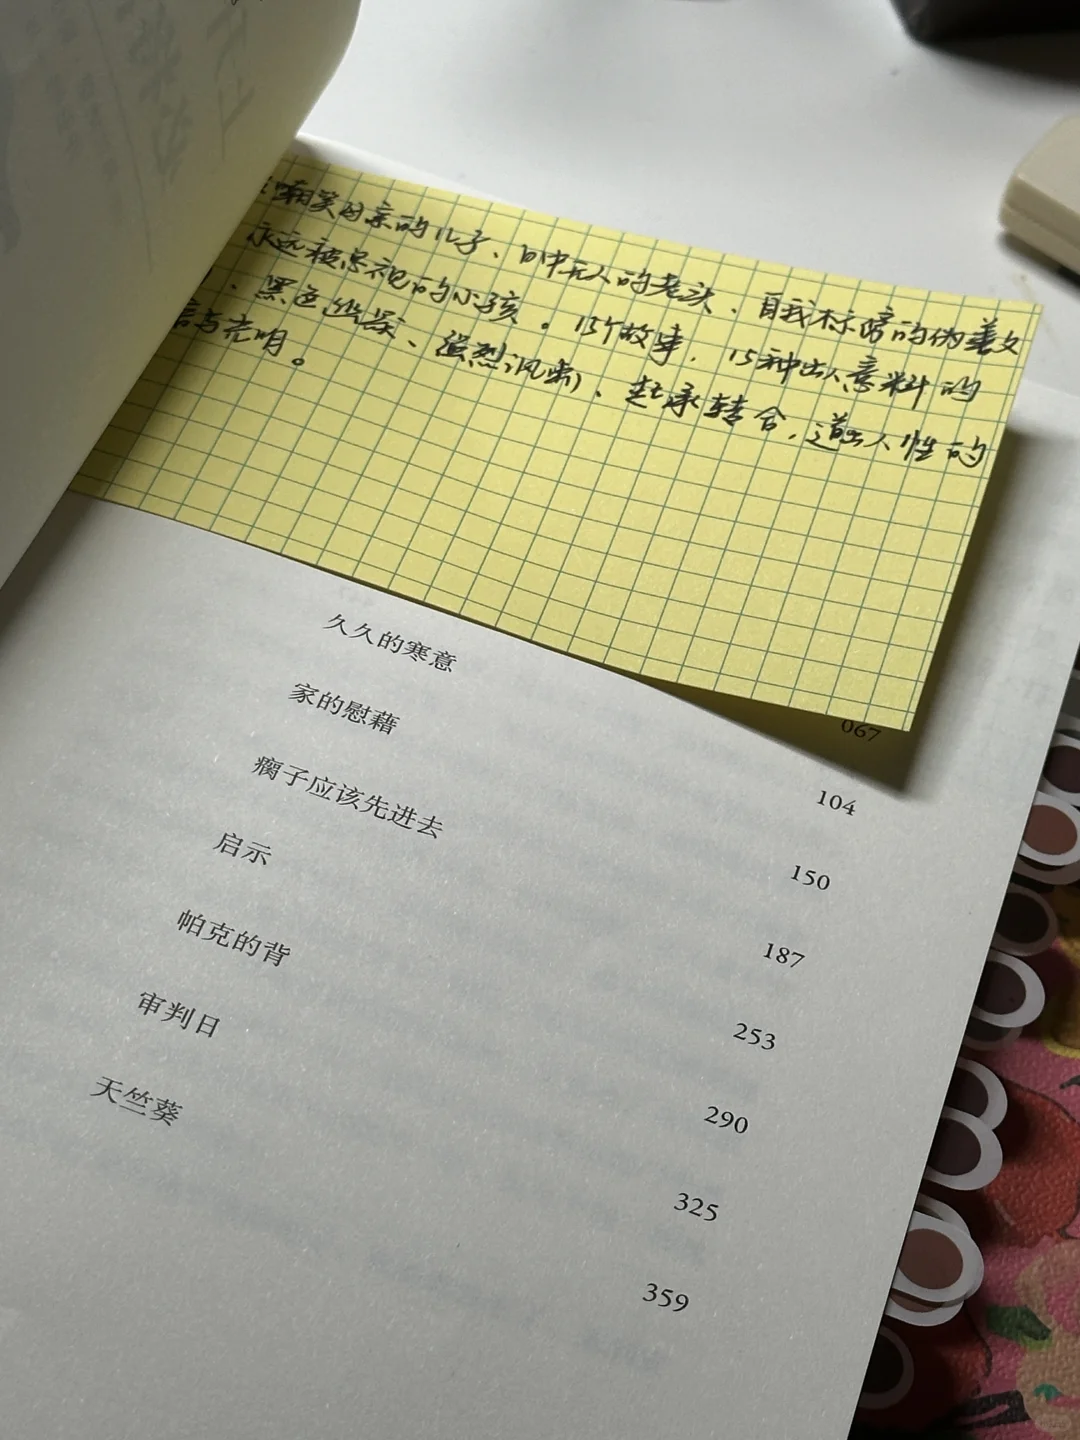 嘲笑母亲的儿子、目中无人的老头、自我标榜的伪善父
永远被忽视的小孩。15个故事，15种出人意料的
、黑色幽默、强烈讽刺、起承转合，道出人性的
与光明。
067
久久的寒意 104
家的慰藉 150
瘸子应该先进去 187
启示 253
帕克的背 290
审判日 325
天竺葵 359